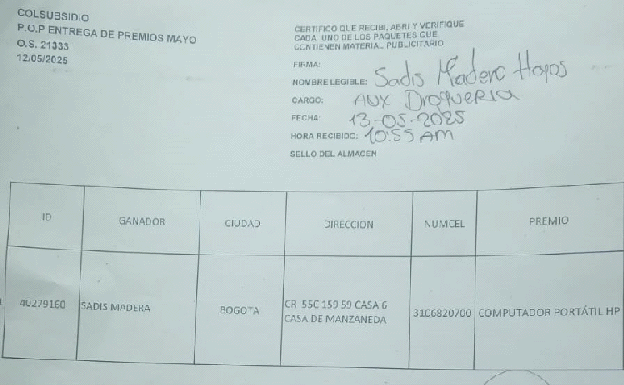 COLSUBSIDIO
P.O.P ENTREGA DE PREMIOS MAYO
O.S. 21333
12/05/2025
CERTIFICO QUE RECIBI, ABRI Y VERIFIQUE
CADA UNO DE LOS PAQUETES QUE
CONTIENEN MATERIAL PUBLICITARIO
FIRMA:
NOMBRE LEGIBLE: Sadis Madera Hoyos
CARGO: AUX Drogueria
FECHA: 13-05-2025
HORA RECIBIDO: 10:55 AM
SELLO DEL ALMACEN
ID GANADOR CIUDAD DIRECCION NUMCEL PREMIO
SADIS MADERA BOGOTA CR 55C 159 59 CASA 6 COMPUTADOR PORTÁTIL HP
CASA DE MANZANEDA